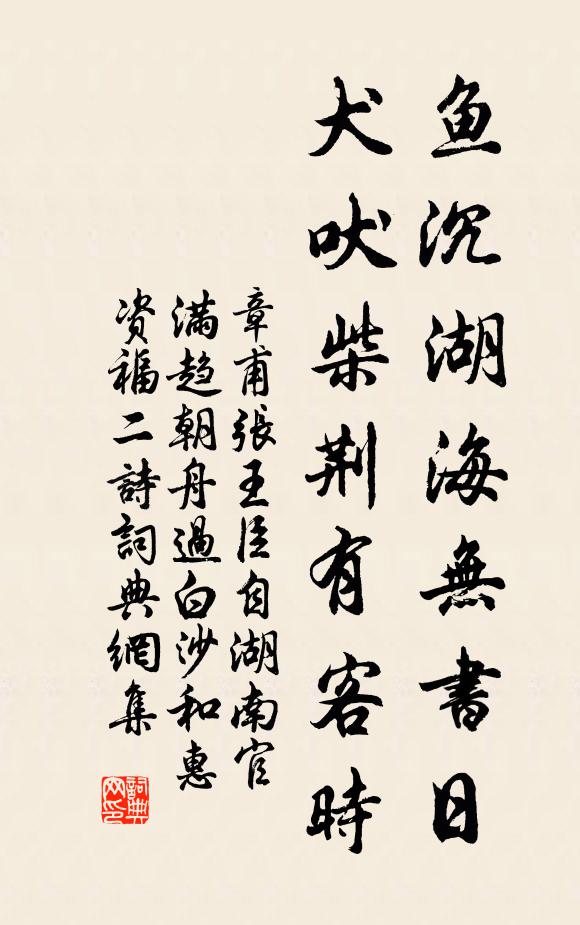 鱼沉湖海無書日
犬吠柴荆有客時
章甫張王臣自湖南官
滿趋朝舟過白沙和惠
资福二詩詞典網集
詞典
网印